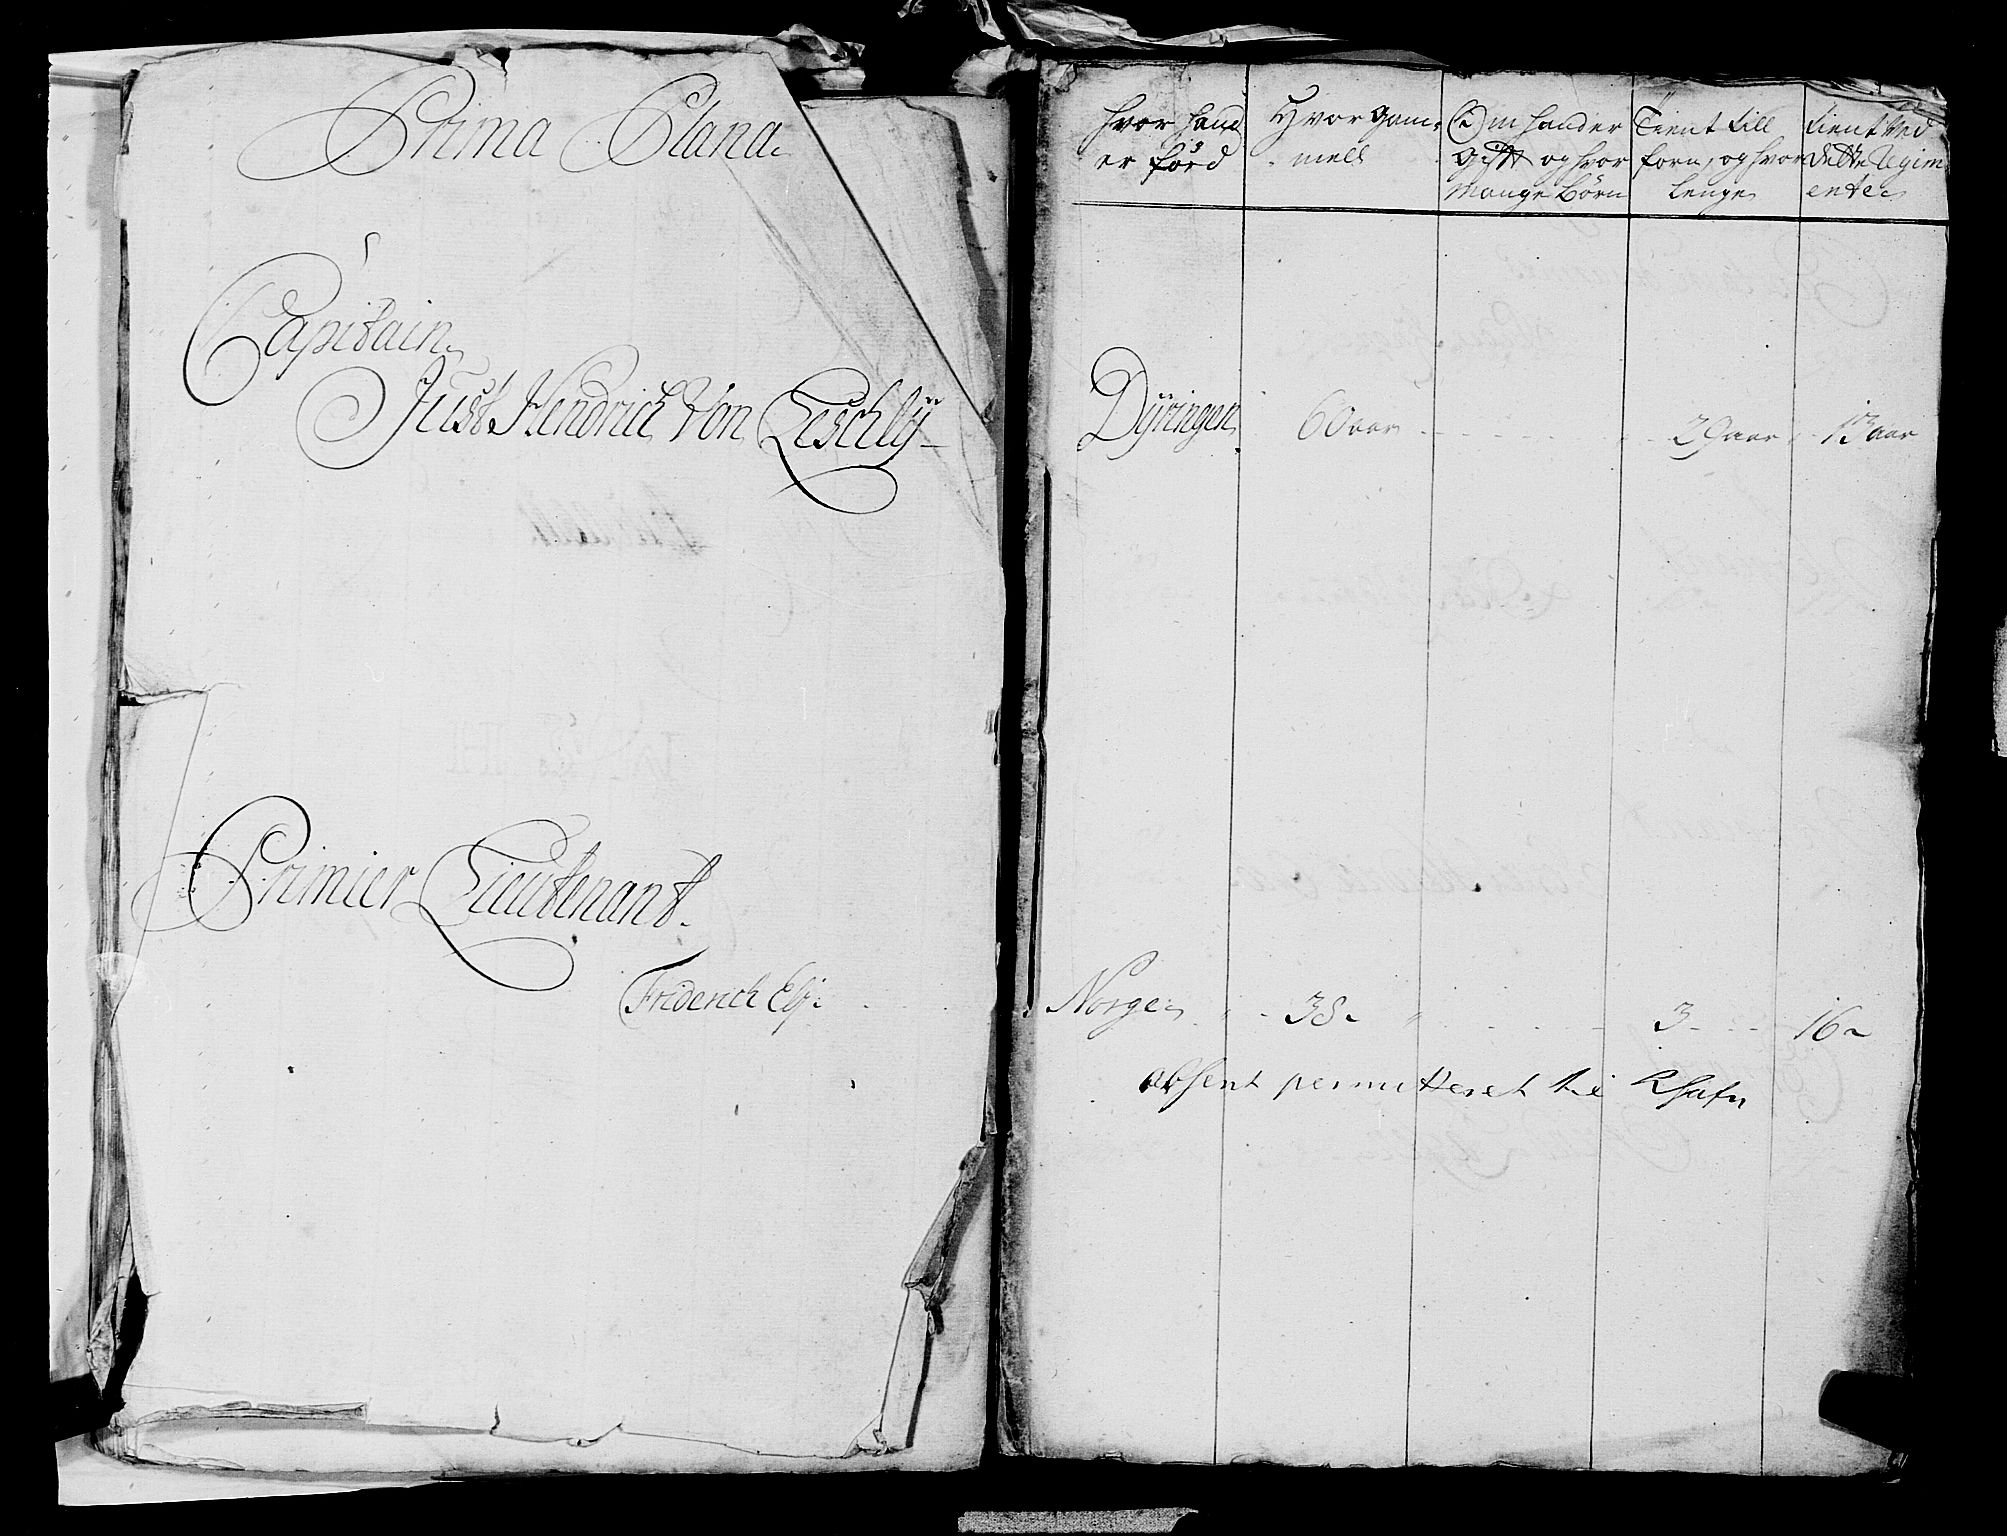 Prima Plana
Capitain
Just Hendrich Von Leschlÿ
Primier Lieutenant
Friderich Elj
hvor hand er förd
Hvor gammell
Om hand er Gift og hvor Mange Börn
Tient till forn, og hvor lenge
tient Ved dette Regimente
Dÿringen 60 aar 29 aar 13 aar
Norge 38 3 16
absent permitteret til Khafn